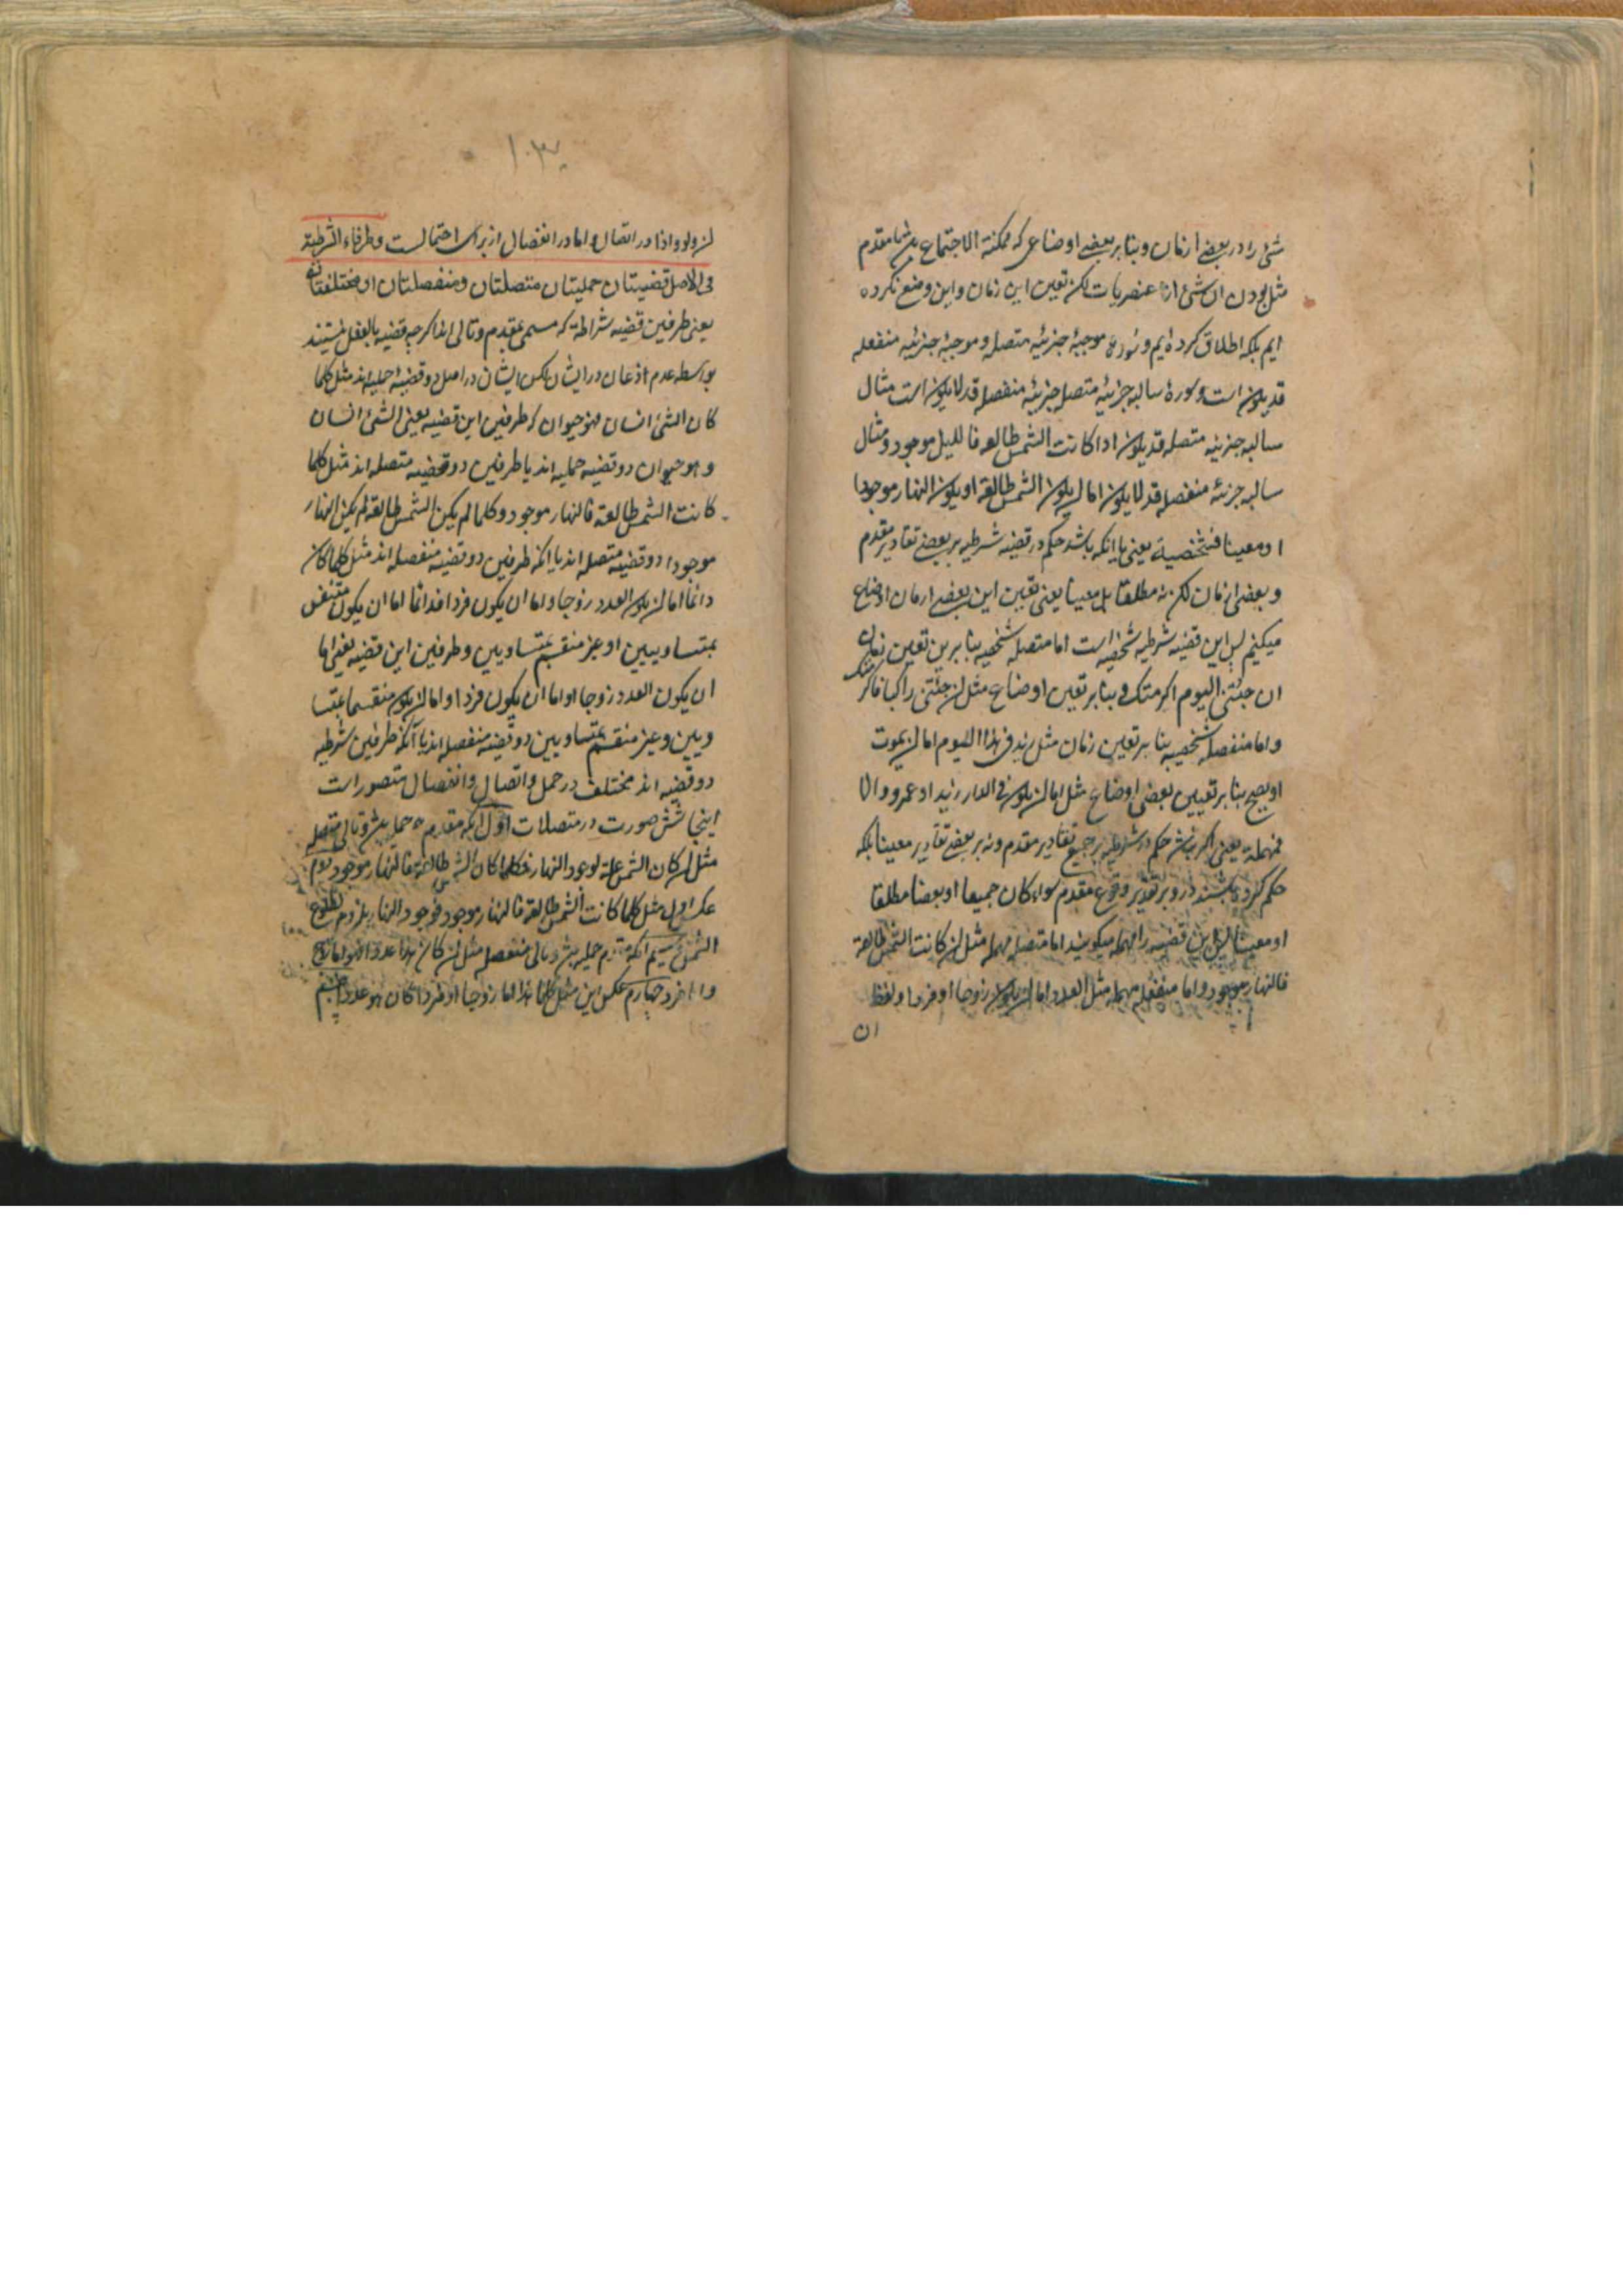 شئ را در بعضے ازمان و بنا بر بعضے اوضاعی که ممکنة الاجتماع باشد با مقدم
مثل بودن آن شئ از عنصریات لکن تعین این زمان و این وضع نکرده
ایم بلکه اطلاق کرده ایم و سورهٔ موجبهٔ جزئیه متصله و موجبهٔ جزئیه منفصله
قد یکون است و سورهٔ سالبه جزئیهٔ متصله جزئیهٔ منفصله قد لا یکون است مثال
سالبه جزئیه متصله قد یکون اذا کانت الشمس طالعه فاللیل موجود و مثال
سالبه جزئیهٔ منفصله قد لا یکون اما ان یکون الشمس طالعة او یکون النهار موجودا
او معینا فشخصیة یعنی یا انکه باشد حکم در قضیه شرطیه بر بعضے تقادیر مقدم
و بعضی ازمان لکن نه مطلقا بل معینا یعنی تعین این بعضے ازمان اوضاع
میکنیم پس این قضیه شرطیه شخصیه است اما متصله شخصیه بنا بر تعین زمان
ان جئتنی الیوم اکرمتک و بنا بر تعین اوضاع مثل ان جئتنی راکبا فاکرمتک
و اما منفصله شخصیه بنا بر تعین زمان مثل زید فی هذا الیوم اما ان یموت
او یصح بنا بر تعیین بعضی اوضاع مثل اما ان یکون فی الدار زید او عمرو والا
فمهملة یعنی اگر نباشد حکم در شرطیه بر جمیع تقادیر مقدم و نه بر بعضے تقادیر معینا بلکه
حکم کرده باشند در و بر تقدیر وقوع مقدم سواء کان جمیعا او بعضا مطلقا
او معینا پس این قضیه را مهمله میکویند اما متصله مهمله مثل ان کانت الشمس طالعة
فالنهار موجود و اما منفصله مهمله مثل العدد اما ان یکون زوجا او فردا و لفظ
ان
۱۰۳
ان و لو و اذا در اتصال و اما در انفصال از برای اهمالست و طرفاء الشرطیة
فی الاصل قضیتان حملیتان متصلتان و منفصلتان او مختلفتان
یعنی طرفین قضیه شرطیة که مسمی بمقدم و تالی اند اکرچه قضیه بالفعل نیستند
بواسطه عدم اذعان در ایشان لکن ایشان در اصل دو قضیهٔ حملیه اند مثل کلما
کان الشئ انسان فهو حیوان که طرفین این قضیه یعنی الشئ انسان
و هو حیوان دو قضیه حملیه اند یا طرفین دو قضیه متصله اند مثل کلما
کانت الشمس طالعة فالنهار موجود و کلما لم یکن الشمس طالعة لم یکن النهار
موجودا دو قضیه متصله اند یا انکه طرفین دو قضیه منفصله اند مثل کلما کان
دائما اما ان یکون العدد زوجا و اما ان یکون فردا فدائما اما ان یکون منقسما
بمتساویین او غیر منقسم بمتساویین و طرفین این قضیه یعنی اما
ان یکون العدد زوجا او اما ان یکون فردا و اما ان یکون منقسما بمتسا
ویین و غیر منقسم بمتساویین دو قضیه منفصله اند یا آنکه طرفین شرطیه
دو قضیه اند مختلف در حمل و اتصال و انفصال متصور است
اینجا شش صورت در متصلات اول آنکه مقدم حملیه باشد و تالی متصله
مثل ان کان الشمس علة لوجود النهار فکلما کان الشمس طالعة فالنهار موجود دوم
عکس اول مثل کلما کانت الشمس طالعة فالنهار موجود فوجود النهار یلزم لطلوع
الشمس سیم آنکه مقدم حملیه باشد و تالی منفصله مثل ان کان هذا عددا فهو اما زوج
و اما فرد چهارم عکس این مثل کلما هذا اما زوجا او فردا کان هو عددا پنجم